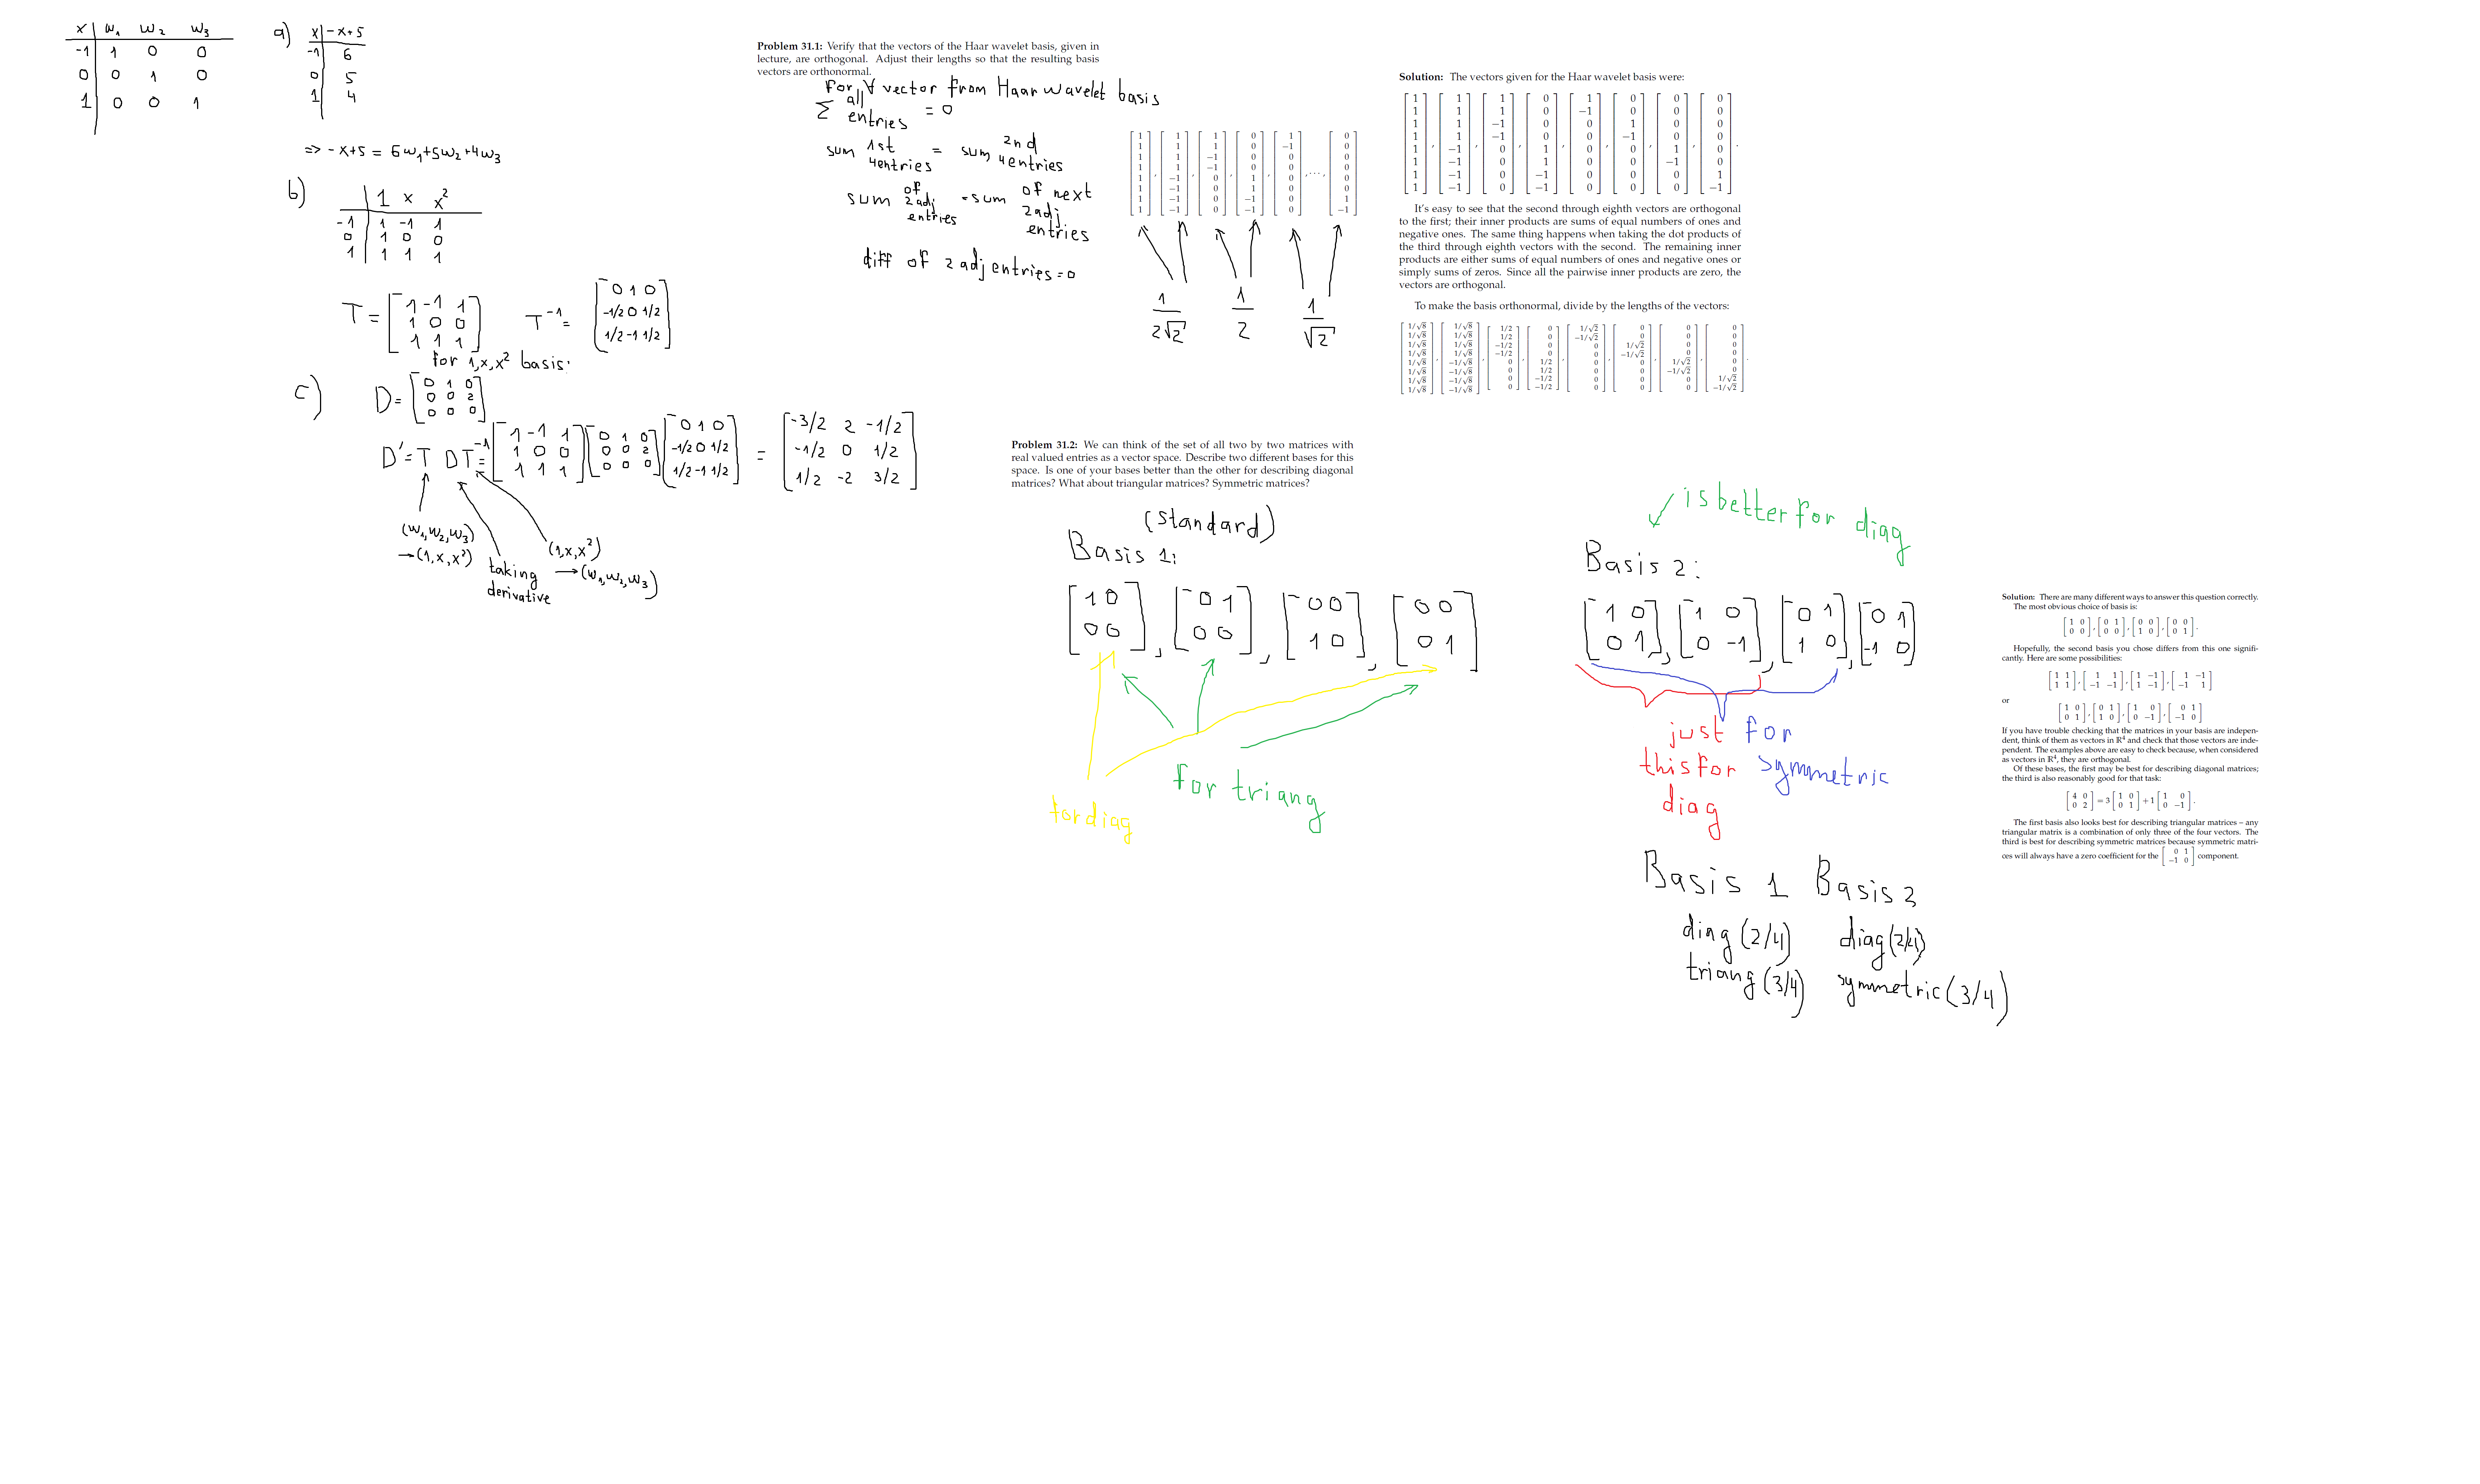 x | w₁ w₂ w₃
-1 | 1 0 0
0 | 0 1 0
1 | 0 0 1
a) x | -x+5
-1 | 6
0 | 5
1 | 4
=> -x+5 = 6w₁+5w₂+4w₃
b) | 1 x x²
-1 | 1 -1 1
0 | 1 0 0
1 | 1 1 1
T = [1 -1 1; 1 0 0; 1 1 1] T⁻¹ = [0 1 0; -1/2 0 1/2; 1/2 -1 1/2]
for 1,x,x² basis:
c) D = [0 1 0; 0 0 2; 0 0 0]
D' = T D T⁻¹ = [1 -1 1; 1 0 0; 1 1 1] [0 1 0; 0 0 2; 0 0 0] [0 1 0; -1/2 0 1/2; 1/2 -1 1/2] = [-3/2 2 -1/2; -1/2 0 1/2; 1/2 -2 3/2]
(w₁,w₂,w₃)
→(1,x,x²)
taking
derivative
(1,x,x²)
→(w₁,w₂,w₃)
Problem 31.1: Verify that the vectors of the Haar wavelet basis, given in
lecture, are orthogonal. Adjust their lengths so that the resulting basis
vectors are orthonormal.
For ∀ vector from Haar wavelet basis
Σ all entries = 0
sum 1st 4entries = sum 2nd 4entries
sum of 2adj entries = sum of next 2adj. entries
diff of 2adj entries=0
[1 1 1 1 1 1 1 1], [1 1 1 1 -1 -1 -1 -1], [1 1 -1 -1 0 0 0 0], [0 0 0 0 1 1 -1 -1], [1 -1 0 0 0 0 0 0], ⋯, [0 0 0 0 0 0 1 -1]
1/2√2 1/2 1/√2
Solution: The vectors given for the Haar wavelet basis were:
[1 1 1 1 1 1 1 1], [1 1 1 1 -1 -1 -1 -1], [1 1 -1 -1 0 0 0 0], [0 0 0 0 1 1 -1 -1], [1 -1 0 0 0 0 0 0], [0 0 1 -1 0 0 0 0], [0 0 0 0 1 -1 0 0], [0 0 0 0 0 0 1 -1].
It's easy to see that the second through eighth vectors are orthogonal
to the first; their inner products are sums of equal numbers of ones and
negative ones. The same thing happens when taking the dot products of
the third through eighth vectors with the second. The remaining inner
products are either sums of equal numbers of ones and negative ones or
simply sums of zeros. Since all the pairwise inner products are zero, the
vectors are orthogonal.
To make the basis orthonormal, divide by the lengths of the vectors:
[1/√8 1/√8 1/√8 1/√8 1/√8 1/√8 1/√8 1/√8], [1/√8 1/√8 1/√8 1/√8 -1/√8 -1/√8 -1/√8 -1/√8], [1/2 1/2 -1/2 -1/2 0 0 0 0], [0 0 0 0 1/2 1/2 -1/2 -1/2], [1/√2 -1/√2 0 0 0 0 0 0], [0 0 1/√2 -1/√2 0 0 0 0], [0 0 0 0 1/√2 -1/√2 0 0], [0 0 0 0 0 0 1/√2 -1/√2].
Problem 31.2: We can think of the set of all two by two matrices with
real valued entries as a vector space. Describe two different bases for this
space. Is one of your bases better than the other for describing diagonal
matrices? What about triangular matrices? Symmetric matrices?
(standard)
Basis 1:
[1 0; 0 0], [0 1; 0 0], [0 0; 1 0], [0 0; 0 1]
for diag
for triang
is better for diag
Basis 2:
[1 0; 0 1], [1 0; 0 -1], [0 1; 1 0], [0 1; -1 0]
just
this for
diag
for
symmetric
Basis 1 Basis 2
diag (2/4) diag (2/4)
triang (3/4) symmetric (3/4)
Solution: There are many different ways to answer this question correctly.
The most obvious choice of basis is:
[1 0; 0 0], [0 1; 0 0], [0 0; 1 0], [0 0; 0 1].
Hopefully, the second basis you chose differs from this one signifi-
cantly. Here are some possibilities:
[1 1; 1 1], [1 1; -1 -1], [1 -1; 1 -1], [1 -1; -1 1]
or
[1 0; 0 1], [0 1; 1 0], [1 0; 0 -1], [0 1; -1 0]
If you have trouble checking that the matrices in your basis are indepen-
dent, think of them as vectors in ℝ⁴ and check that those vectors are inde-
pendent. The examples above are easy to check because, when considered
as vectors in ℝ⁴, they are orthogonal.
Of these bases, the first may be best for describing diagonal matrices;
the third is also reasonably good for that task:
[4 0; 0 2] = 3 [1 0; 0 1] + 1 [1 0; 0 -1].
The first basis also looks best for describing triangular matrices – any
triangular matrix is a combination of only three of the four vectors. The
third is best for describing symmetric matrices because symmetric matri-
ces will always have a zero coefficient for the [0 1; -1 0] component.